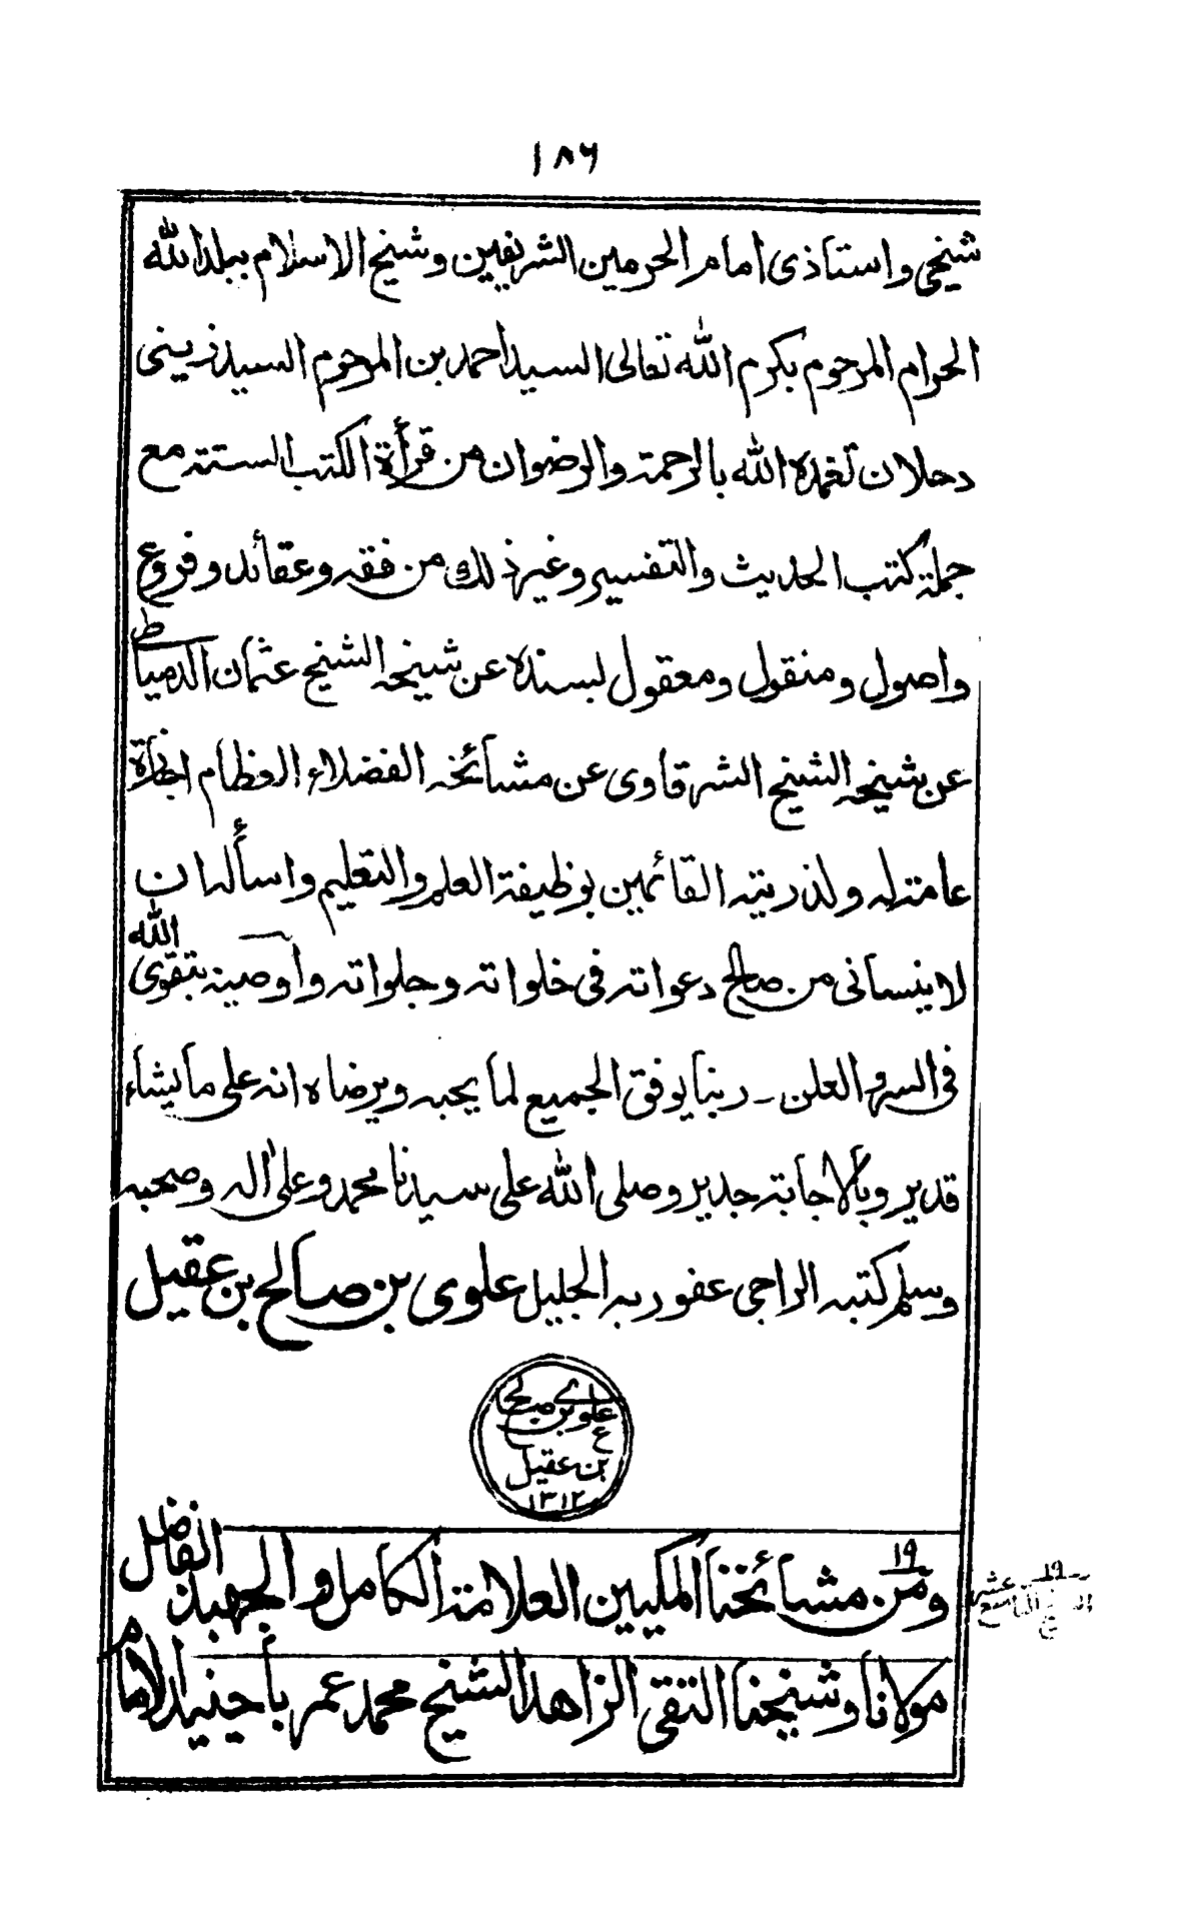 ١٨٦
شيخي واستاذى امام الحرمين الشريفين وشيخ الاسلام ببلد الله
الحرام المرحوم بكرم الله تعالى السيد احمد بن المرحوم السيد زينى
دحلان تغمده الله بالرحمة والرضوان من قرأة الكتب الستة مع
جملة كتب الحديث والتفسير وغير ذلك من فقه وعقائد وفروع
واصول ومنقول ومعقول بسنده عن شيخه الشيخ عثمان الدمياطى
عن شيخه الشيخ الشرقاوى عن مشائخه الفضلاء العظام اجازة
عامة له ولذريته القائمين بوظيفة العلم والتعليم واسأله ان
لاينسانى من صالح دعواته فى خلواته وجلواته وأوصيه بتقوى الله
فى السر والعلن ـ ربنا يوفق الجميع لما يحبه ويرضاه انه على مايشاء
قدير وبالاجابة جدير وصلى الله على سيدنا محمد وعلى اله وصحبه
وسلم كتبه الراجى عفو ربه الجليل علوى بن صالح بن عقيل
علوي بن صالح
بن عقيل
١٣١٢
١٩
ومن مشائخنا المكيين العلامة الكامل والجهبذ الفاضل
مولانا وشيخنا التقى الزاهد الشيخ محمد عمر باجنيد الامام
١٩